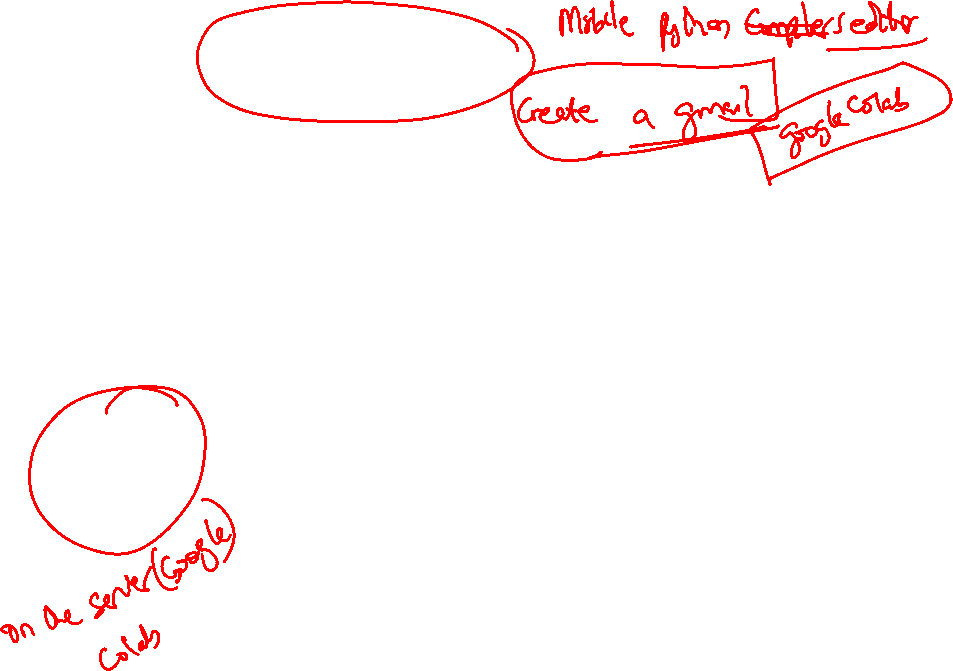 Mobile python editor
Create a gmail
google Colab
on the server (Google)
Colab